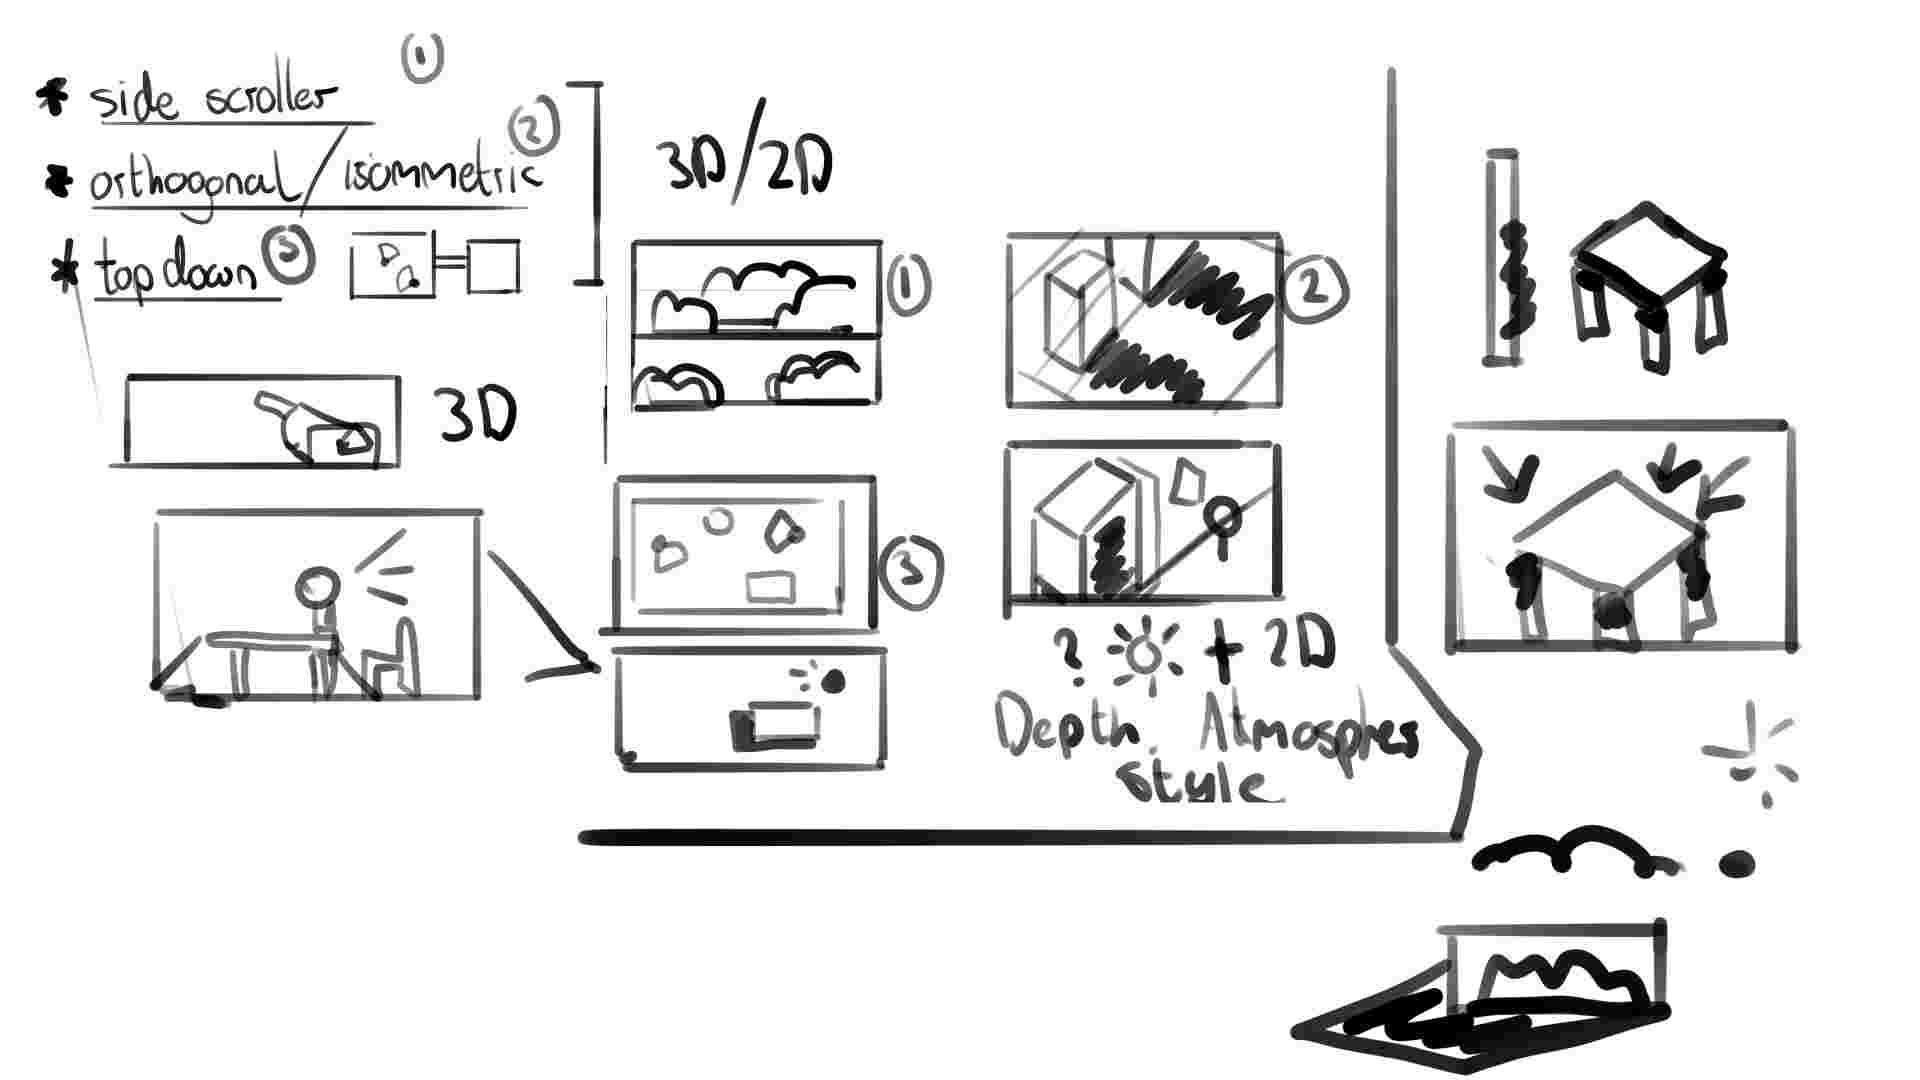 * side scroller ①
* orthogonal / isommetric ②
* top down ③
3D/2D
①
②
3D
③
? + 2D
Depth. Atmosphres
style